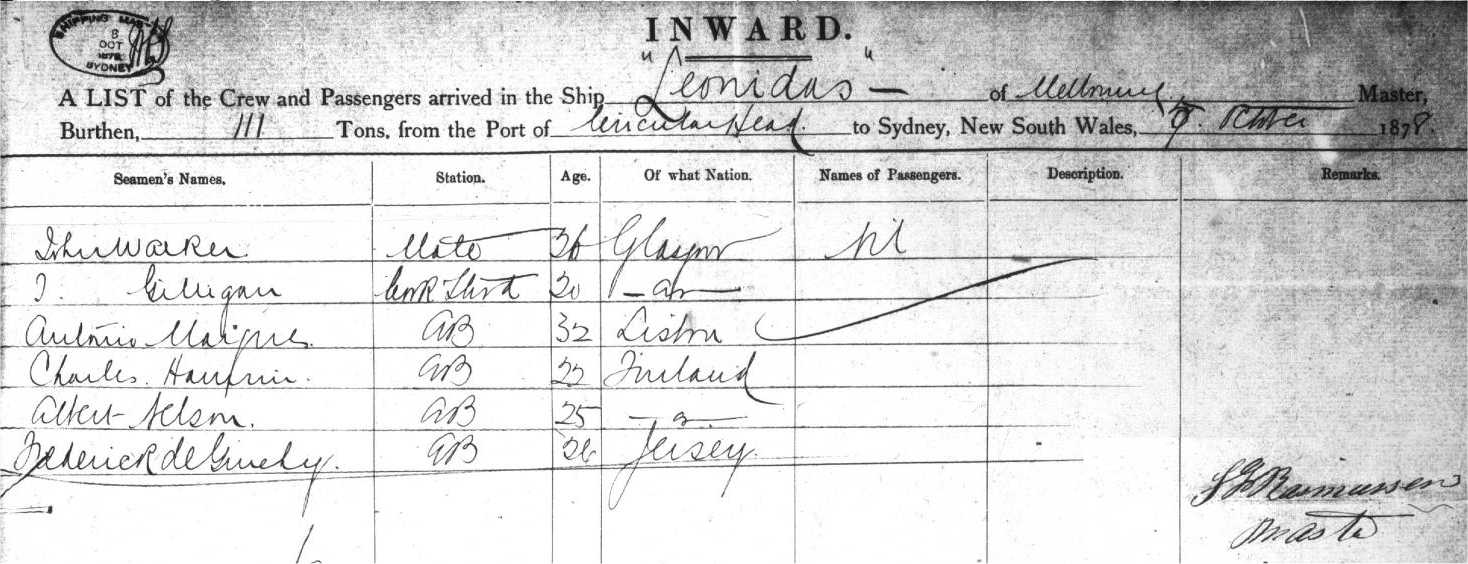 SHIPPING MAS
8
OCT
1878
SYDNEY
INWARD.
A LIST of the Crew and Passengers arrived in the Ship "Leonidas" — of Melbourne Master,
Burthen, 111 Tons, from the Port of Circular Head. to Sydney, New South Wales, October 1878.
Seamen's Names. Station. Age. Of what Nation. Names of Passengers. Description. Remarks.
John Walker Mate 36 Glasgow Nil
J. Gilligan Cook Stwd — do —
Antonio 32 Lisbon
Charles AB 22 Finland
Albert Nelson. AB 25 — do —
Frederick de AB 26 Jersey.
Rasmussen
Master